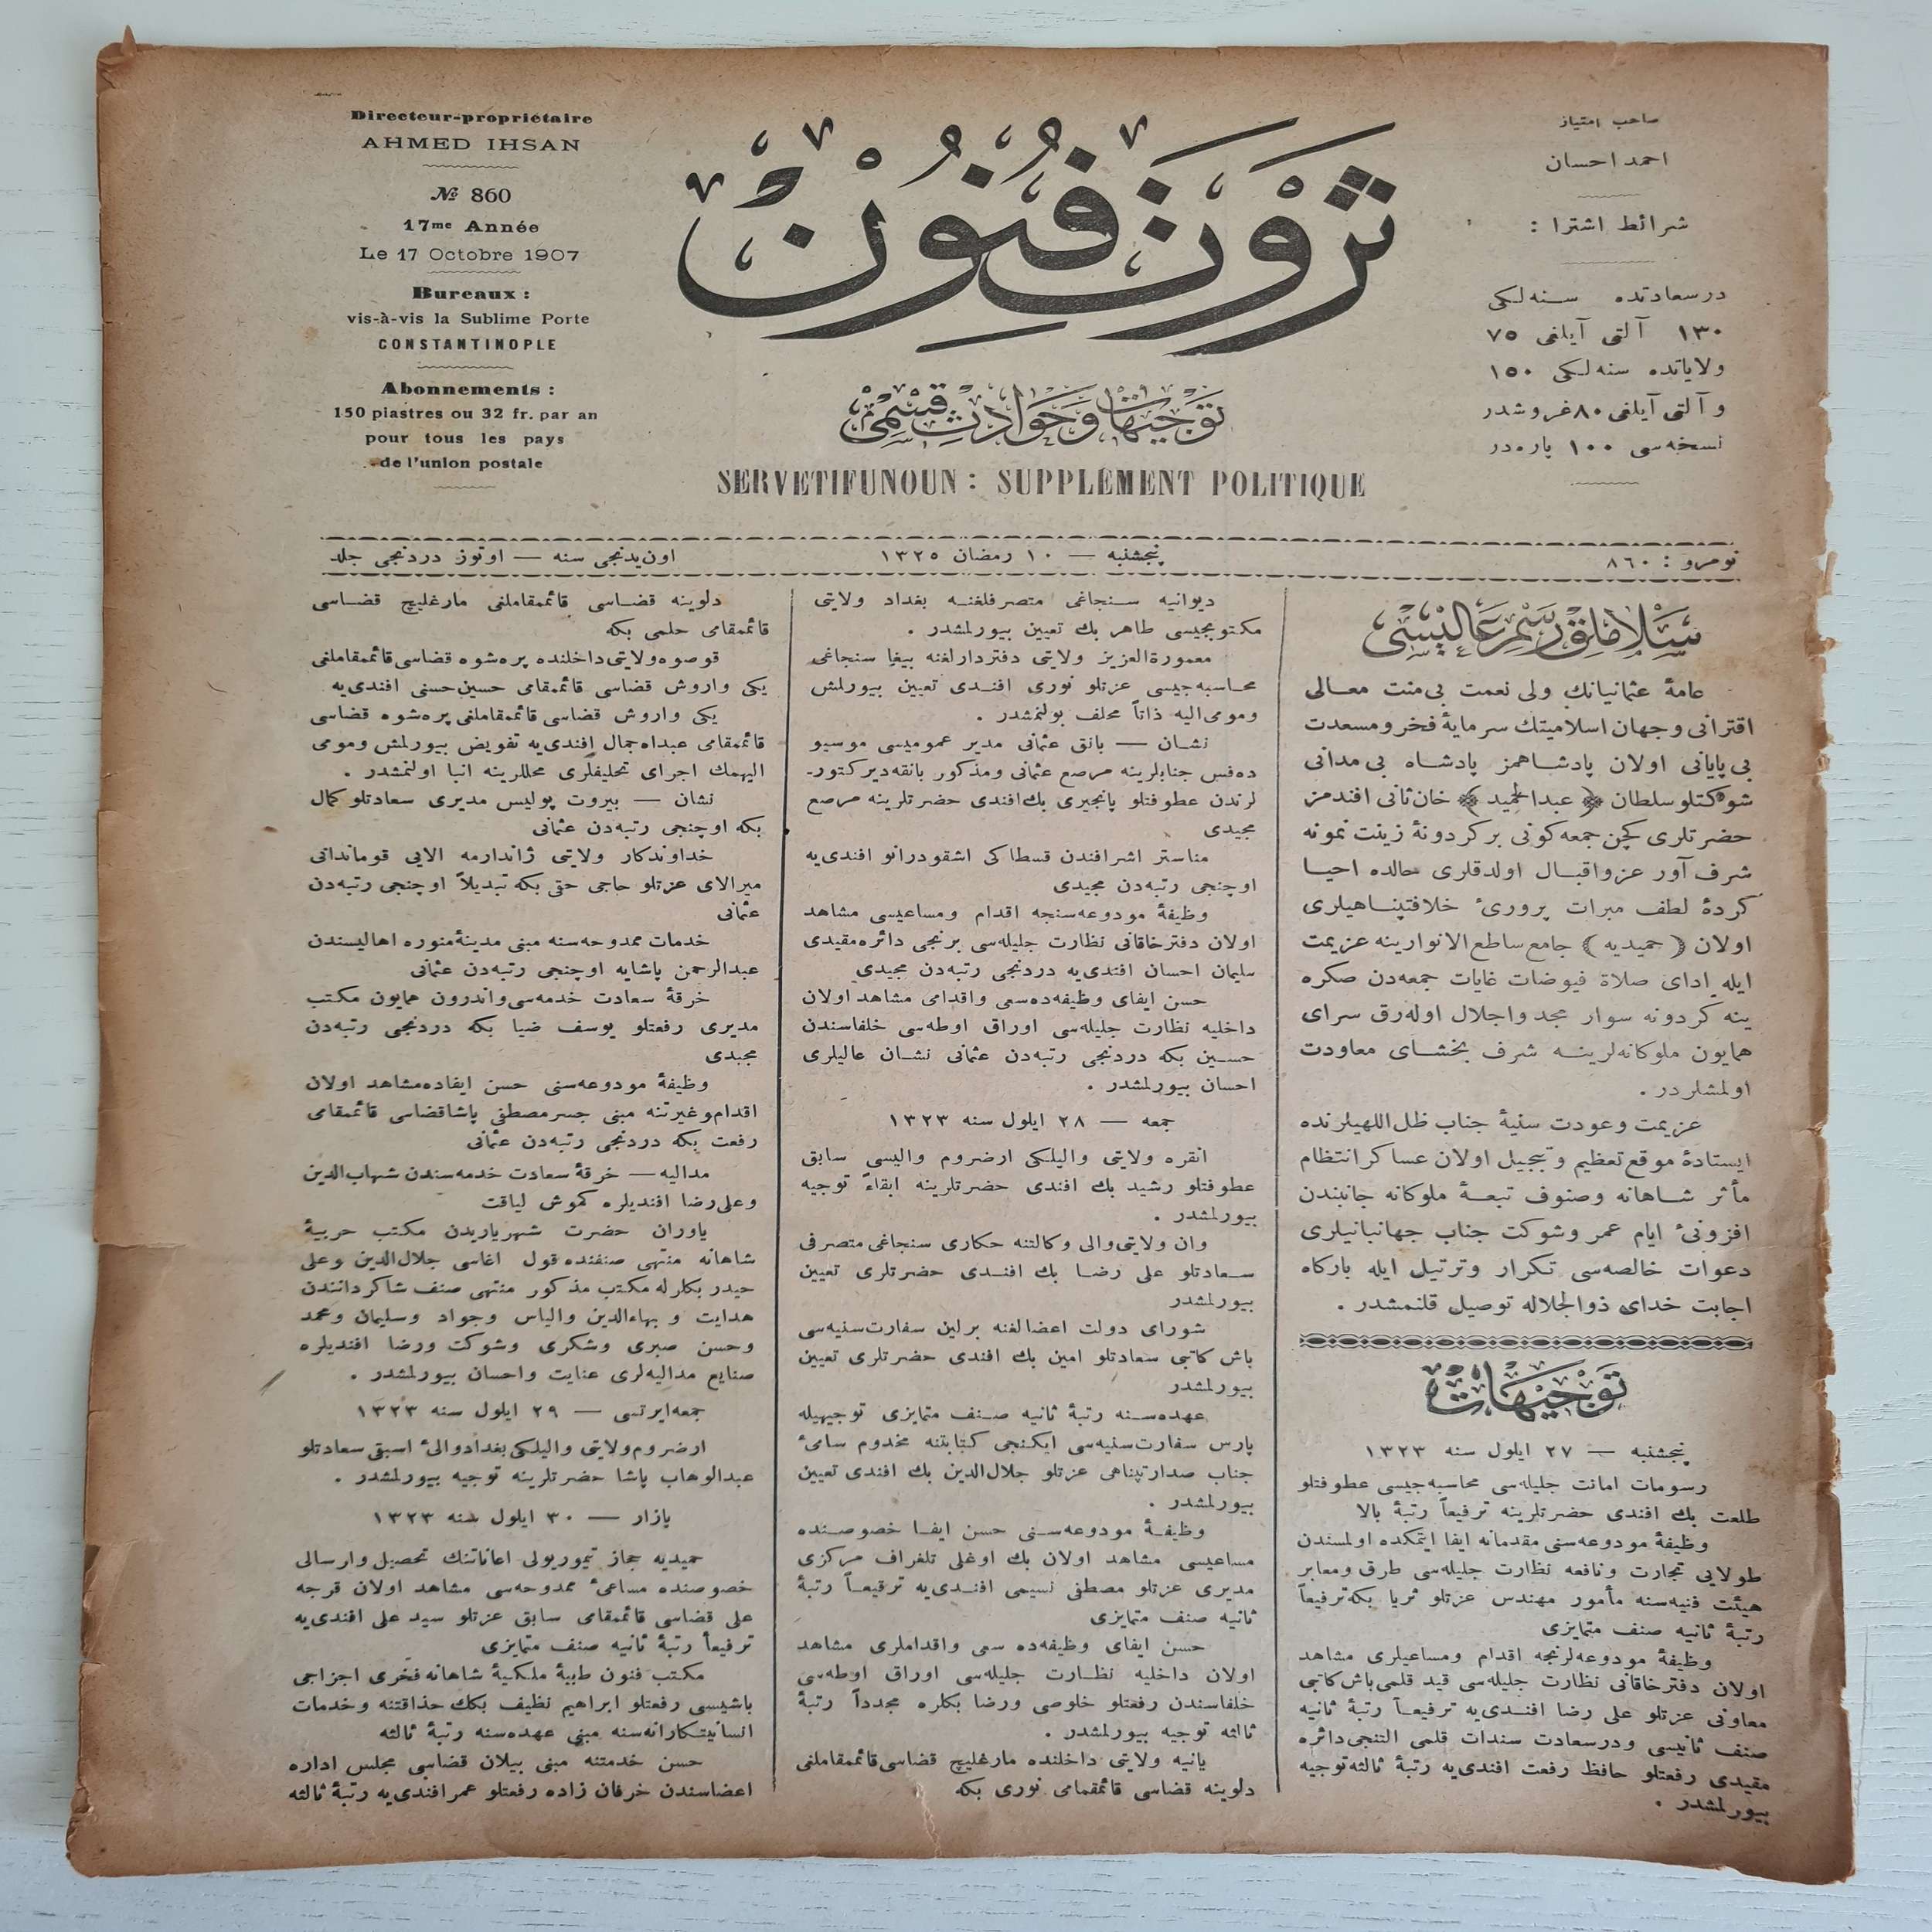 Directeur-propriétaire
AHMED IHSAN
№ 860
17me Année
Le 17 Octobre 1907
Bureaux :
vis-à-vis la Sublime Porte
CONSTANTINOPLE
Abonnements :
150 piastres ou 32 fr. par an
pour tous les pays
de l'union postale
ثروت فنون
توجيهات وحوادث قسمى
SERVETIFUNOUN : SUPPLÉMENT POLITIQUE
صاحب امتياز
احمد احسان
شرائط اشترا :
درسعادتده سنه‌لكى
١٣٠ آلتى آيلغى ٧٥
ولاياتده سنه‌لكى ١٥٠
و آلتى آيلغى ٨٠ غروشدر
نسخه‌سى ١٠٠ پاره‌در
نومرو : ٨٦٠
پنجشنبه — ١٠ رمضان ١٣٢٥
اون يدنجى سنه — اوتوز دردنجى جلد
سلاملق رسم عاليسى
عامهٔ عثمانيانك ولى نعمت بى‌منت معالى
اقترانى وجهان اسلاميتك سرمايهٔ فخر ومسعدت
بى‌پايانى اولان پادشاهمز پادشاه بى‌مدانى
شوكتلو سلطان ﴿ عبدالحميد ﴾ خان ثانى افندمز
حضرتلرى كچن جمعه كونى بر كردونهٔ زينت نمونه
شرف آور عز واقبال اولدقلرى حالده احيا
كردهٔ لطف مبرات پرورىٔ خلافتپناهيلرى
اولان ﴿ حميديه ﴾ جامع ساطع الانوارينه عزيمت
ايله اداى صلاة فيوضات غايات جمعه‌دن صكره
ينه كردونه سوار مجد واجلال اوله‌رق سراى
همايون ملوكانه‌لرينه شرف بخشاى معاودت
اولمشلردر .
عزيمت وعودت سنيهٔ جناب ظل‌اللهيلرنده
ايستادهٔ موقع تعظيم وتبجيل اولان عساكر انتظام
مأثر شاهانه وصنوف تبعهٔ ملوكانه جانبندن
افزونىٔ ايام عمر وشوكت جناب جهانبانيلرى
دعوات خالصه‌سى تكرار وترتيل ايله باركاه
اجابت خداى ذوالجلاله توصيل قلنمشدر .
توجيهات
پنجشنبه — ٢٧ ايلول سنه ١٣٢٣
رسومات امانت جليله‌سى محاسبه‌جيسى عطوفتلو
طلعت بك افندى حضرتلرينه ترفيعاً رتبهٔ بالا
وظيفهٔ مودوعه‌سنى مقدمانه ايفا ايتمكده اولمسندن
طولايى تجارت ونافعه نظارت جليله‌سى طرق ومعابر
هيئت فنيه‌سنه مأمور مهندس عزتلو ثريا بكه ترفيعاً
رتبهٔ ثانيه صنف متمايزى
وظيفهٔ مودوعه‌لرنجه اقدام ومساعيلرى مشاهد
اولان دفترخاقانى نظارت جليله‌سى قيد قلمى باش كاتبى
معاونى عزتلو على رضا افندى‌يه ترفيعاً رتبهٔ ثانيه
صنف ثانيسى ودرسعادت سندات قلمى التنجى دائره
مقيدى رفعتلو حافظ رفعت افندى‌يه رتبهٔ ثالثه توجيه
بيورلمشدر .
ديوانيه سنجاغى متصرفلغنه بغداد ولايتى
مكتوبجيسى طاهر بك تعيين بيورلمشدر .
معمورة‌العزيز ولايتى دفتردارلغنه بيغا سنجاغى
محاسبه‌جيسى عزتلو نورى افندى تعيين بيورلمش
ومومى‌اليه ذاتاً محلف بولنمشدر .
نشان — بانق عثمانى مدير عموميسى موسيو
ده‌فس جنابلرينه مرصع عثمانى ومذكور بانقه ديركتور-
لرندن عطوفتلو پانجيرى بك افندى حضرتلرينه مرصع
مجيدى
مناستر اشرافندن قسطاكى اشقودرانو افندى‌يه
اوچنجى رتبه‌دن مجيدى
وظيفهٔ مودوعه‌سنجه اقدام ومساعيسى مشاهد
اولان دفترخاقانى نظارت جليله‌سى برنجى دائره مقيدى
سليمان احسان افندى‌يه دردنجى رتبه‌دن مجيدى
حسن ايفاى وظيفه‌ده سعى واقدامى مشاهد اولان
داخليه نظارت جليله‌سى اوراق اوطه‌سى خلفاسندن
حسين بكه دردنجى رتبه‌دن عثمانى نشان عاليلرى
احسان بيورلمشدر .
جمعه — ٢٨ ايلول سنه ١٣٢٣
انقره ولايتى واليلكى ارضروم واليسى سابق
عطوفتلو رشيد بك افندى حضرتلرينه ابقاءً توجيه
بيورلمشدر .
وان ولايتى والى وكالتنه حكارى سنجاغى متصرفى
سعادتلو على رضا بك افندى حضرتلرى تعيين
بيورلمشدر
شوراى دولت اعضالغنه برلين سفارت سنيه‌سى
باش كاتبى سعادتلو امين بك افندى حضرتلرى تعيين
بيورلمشدر
عهده‌سنه رتبهٔ ثانيه صنف متمايزى توجيهيله
پارس سفارت سنيه‌سى ايكنجى كتابتنه مخدوم سامىٔ
جناب صدارتپناهى عزتلو جلال‌الدين بك افندى تعيين
بيورلمشدر .
وظيفهٔ مودوعه‌سنى حسن ايفا خصوصنده
مساعيسى مشاهد اولان بك اوغلى تلغراف مركزى
مديرى عزتلو مصطفى نسيمى افندى‌يه ترقيعاً رتبهٔ
ثانيه صنف متمايزى
حسن ايفاى وظيفه‌ده سعى واقداملرى مشاهد
اولان داخليه نظارت جليله‌سى اوراق اوطه‌سى
خلفاسندن رفعتلو خلوصى ورضا بكلره مجدداً رتبهٔ
ثالثه توجيه بيورلمشدر .
يانيه ولايتى داخلنده مارغليچ قضاسى قائممقاملغى
دلوينه قضاسى قائمقمامى نورى بكه
دلوينه قضاسى قائممقاملغى مارغليچ قضاسى
قائممقامى حلمى بكه
قوصوه ولايتى داخلنده پره‌شوه قضاسى قائممقاملغى
يكى واروش قضاسى قائممقامى حسين حسنى افندى‌يه
يكى واروش قضاسى قائممقاملغى پره‌شوه قضاسى
قائممقامى عبداه جمال افندى‌يه تفويض بيورلمش ومومى
اليهمك اجراى تحليفلرى محللرينه انبا اولنمشدر .
نشان — بيروت پوليس مديرى سعادتلو كمال
بكه اوچنجى رتبه‌دن عثمانى
خداوندكار ولايتى ژاندارمه الايى قوماندانى
ميرالاى عزتلو حاجى حقى بكه تبديلاً اوچنجى رتبه‌دن
عثمانى
خدمات ممدوحه‌سنه مبنى مدينهٔ منوره اهاليسندن
عبدالرحمن پاشايه اوچنجى رتبه‌دن عثمانى
خرقهٔ سعادت خدمه‌سى واندرون همايون مكتب
مديرى رفعتلو يوسف ضيا بكه دردنجى رتبه‌دن
مجيدى
وظيفهٔ مودوعه‌سنى حسن ايفاده مشاهد اولان
اقدام وغيرتنه مبنى جسر مصطفى پاشا قضاسى قائممقامى
رفعت بكه دردنجى رتبه‌دن عثمانى
مداليه — خرقهٔ سعادت خدمه‌سندن شهاب‌الدين
وعلى رضا افنديلره كموش لياقت
ياوران حضرت شهرياريدن مكتب حربيهٔ
شاهانه منتهى صنفنده قول اغاسى جلال‌الدين وعلى
حيدر بكلرله مكتب مذكور منتهى صنف شاكرداننندن
هدايت و بهاءالدين والياس وجواد وسليمان ومحمد
وحسن صبرى وشكرى وشوكت ورضا افنديلره
صنايع مداليه‌لرى عنايت واحسان بيورلمشدر .
جمعه‌ايرتسى — ٢٩ ايلول سنه ١٣٢٣
ارضروم ولايتى واليلكى بغداد والىٔ اسبقى سعادتلو
عبدالوهاب پاشا حضرتلرينه توجيه بيورلمشدر .
پازار — ٣٠ ايلول سنه ١٣٢٣
حميديه حجاز تيموريولى اعاناتنك تحصيل وارسالى
خصوصنده مساعىٔ ممدوحه‌سى مشاهد اولان قرجه
على قضاسى قائممقامى سابق عزتلو سيد على افندى‌يه
ترفيعاً رتبهٔ ثانيه صنف متمايزى
مكتب فنون طبيهٔ ملكيهٔ شاهانه فخرى اجزاجى
باشيسى رفعتلو ابراهيم نظيف بكك حذاقتنه وخدمات
انسانيتكارانه‌سنه مبنى عهده‌سنه رتبهٔ ثالثه
حسن خدمتنه مبنى بيلان قضاسى مجلس اداره
اعضاسندن خرفان زاده رفعتلو عمر افندى‌يه رتبهٔ ثالثه